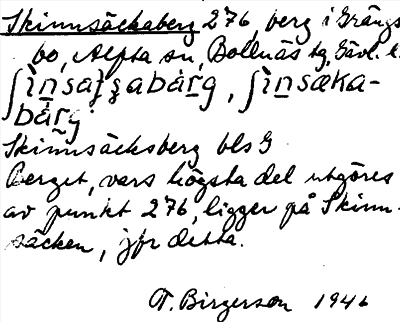 Skinnsäckaberg 276, berg i Grängs-
bo, Alfta sn, Bollnäs tg, Gävl. l.
bàrg
Skinnsäcksberg bls G
Berget, vars högsta del utgöres
av punkt 276, ligger på Skinn-
säcken, jfr detta.
T. Birgerson 1946